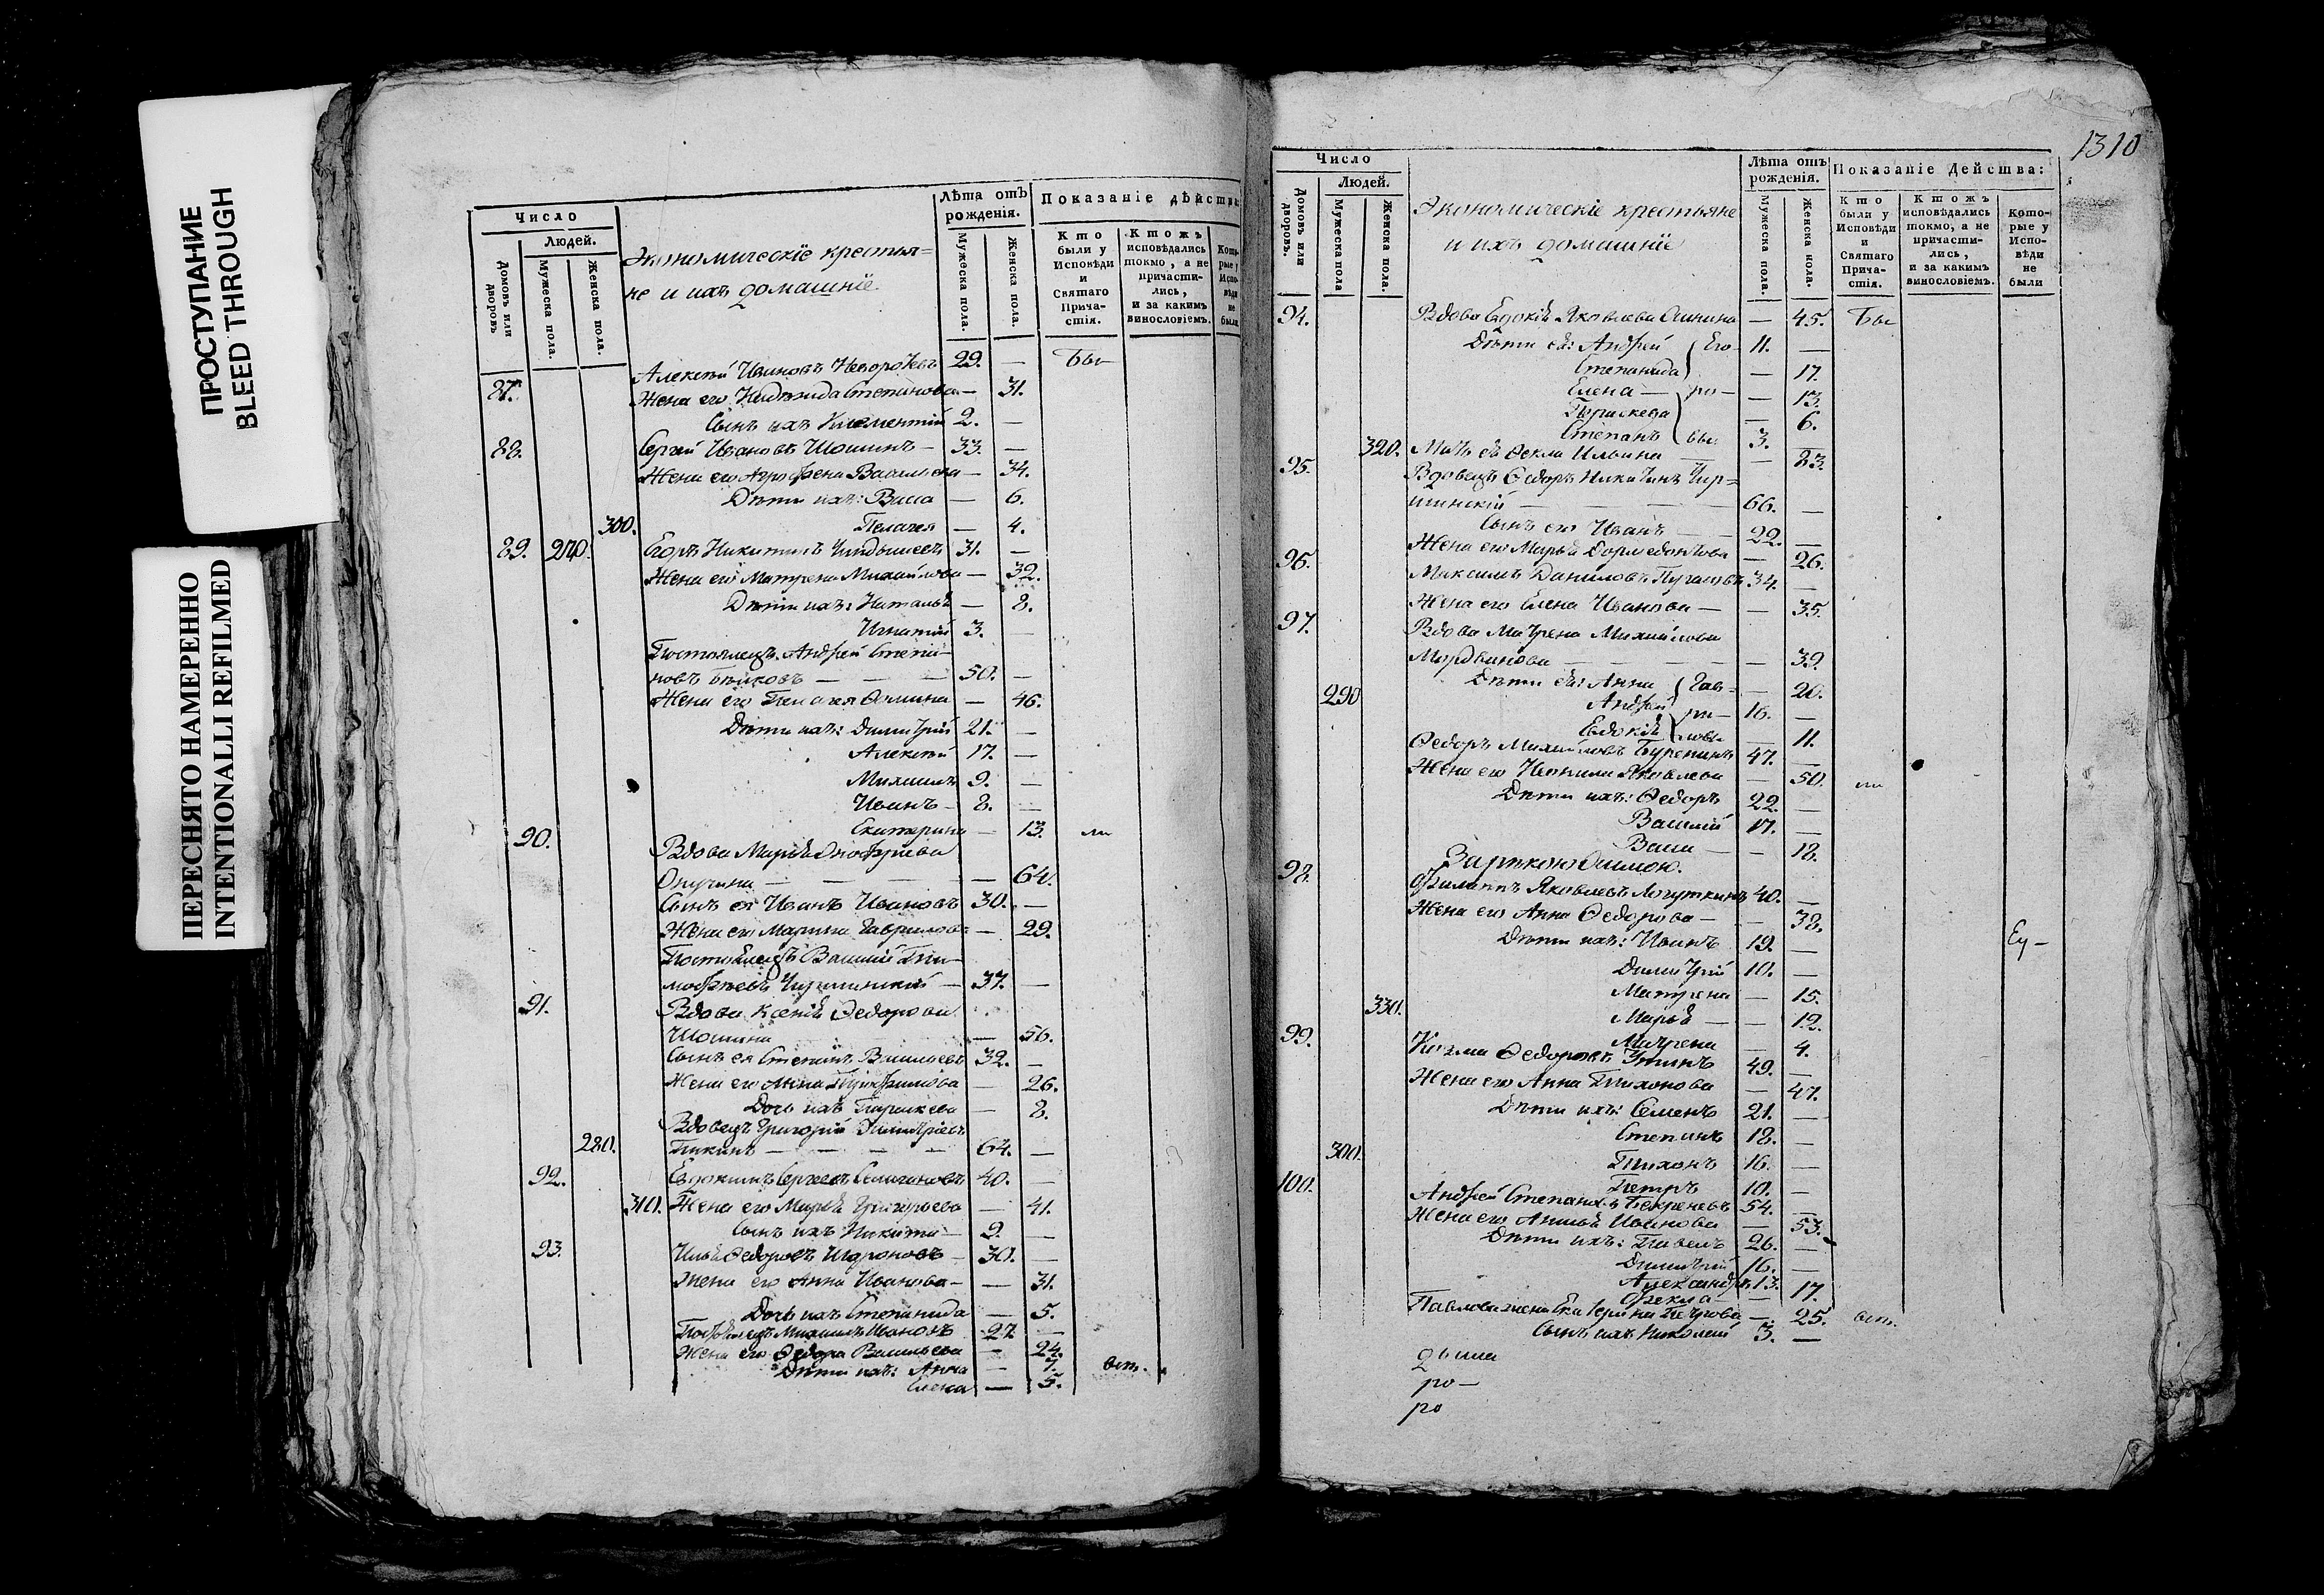 ПРОСТУПАНИЕ
BLEED THROUGH
ПЕРЕСНЯТО НАМЕРЕННО
INTENTIONALLI REFILMED
Число
Людей.
Домовъ или дворовъ
Мужеска пола.
Женска пола.
Экономическіе крестья=
не и ихъ домашніе
Лѣта отъ рожденія.
Мужеска пола.
Женска пола.
Показаніе дѣйства
Кто были у Исповѣди и Святаго Причастія.
Ктожъ исповѣдались токмо, а не причастились, и за какимъ винословіемъ.
Кото-рые у Испо-вѣди не были
87. Алексѣй Ивановъ 29. — Бы
Жена его Надежда Степанова — 31.
Сынъ ихъ Климентій 2. —
88. Сергей Ивановъ Шошинъ — 33. —
Жена его Аграфена Васильева — 34.
Дѣти ихъ: Васса — 6.
300. Пелагея — 4.
89. 270. Егоръ Никитинъ 31. —
Жена его Матрена Михайлова — 32.
Дѣти ихъ: Наталья — 8.
Игнатій 3. —
Постоялецъ Андрей Степа-
новъ — 50. —
Жена его Пелагея Фомина — 46.
Дѣти ихъ: Димитрій 21. —
Алексѣй 17. —
Михаилъ 9. —
Иванъ — 8. —
Екатерина — 13. ли
90. Вдова Марья Онофріева
— 64.
Сынъ ея Иванъ Ивановъ 30. —
Жена его Марина Гаврилова — 29.
Постоялецъ Василій Ти-
мофѣевъ Чиршинскій — 37. —
91. Вдова Ксенія Федорова
Шошина — 56.
Сынъ ея Степанъ Васильевъ 32. —
Жена его Анна — 26.
Дочь ихъ Параскева — 8.
Вдовецъ Григорій Димитріевъ
280. 64. —
92. Евдокимъ Сергеевъ 40. —
310. Жена его Марья Григорьева — 41.
Сынъ ихъ Никита 9. —
93. Илья Федоровъ 30. —
Жена его Анна Иванова — 31.
Дочь ихъ Степанида — 5.
Михаилъ Ивановъ 27. —
Жена его Федора Васильева — 24.
Дѣти ихъ: Анна — 7. вот.
Елена — 5.
1310
Число
Людей.
Домовъ или дворовъ.
Мужеска пола
Женска пола.
Экономическіе крестьяне
и ихъ домашніе
Лѣта отъ рожденія.
Мужеска пола.
Женска пола.
Показаніе Действа:
Кто были у Исповѣди и Святаго Прича-стія.
Ктожъ исповѣдались токмо, а не причасти-лись, и за какимъ винословіемъ.
Кото-рые у Испо-вѣди не были
94. Вдова Евдокія Яковлева — 45. Бы
Дѣти ея: Андрей Его- 11. —
Степанида — 17.
Елена — ро — — 13.
Параскева — 6.
Степанъ вы 3. —
320. Мать ея Фекла Ильина — 83.
95. Вдовецъ Федоръ Никитинъ Чир=
шинскій — 66. —
Сынъ его Иванъ — 22. —
Жена его Марья Дормедонтова — 26.
96. Максимъ Даниловъ 34. —
Жена его Елена Иванова — — 35.
97. Вдова Матрена Михайлова
Мордвинова — — 39.
Дѣти ея: Анна Гав= — 20.
290 Андрей ри — 16. —
Евдокія ловы — 11.
Федоръ Михайловъ 47. —
Жена его Неонила Яковлева — 50. ли
Дѣти ихъ: Федоръ 22. —
Василій 17. —
Васса — — 18.
За рѣкою
98. Филиппъ Яковлевъ Логуткинъ 40. —
Жена его Анна Федорова — — 38.
Дѣти ихъ: Иванъ 19. —
Димитрій 10. —
Матрена — 15.
330. Марья — — 12.
Матрена — 4.
99. Козма Федоровъ 49. —
Жена его Анна Тихонова — 47.
Дѣти ихъ: Семенъ 21. —
Степанъ 18. —
300. Тихонъ 16. —
Петръ 10. —
100. Андрей Степановъ 54. —
Жена его Иванова — 53.
Дѣти ихъ: Павелъ 26. —
Димитрій 16. —
Александръ 13.
Фекла — 17.
Павлова жена Екатерина Петрова — 25. вот.
Сынъ ихъ Николай 3. —
ро —
ро